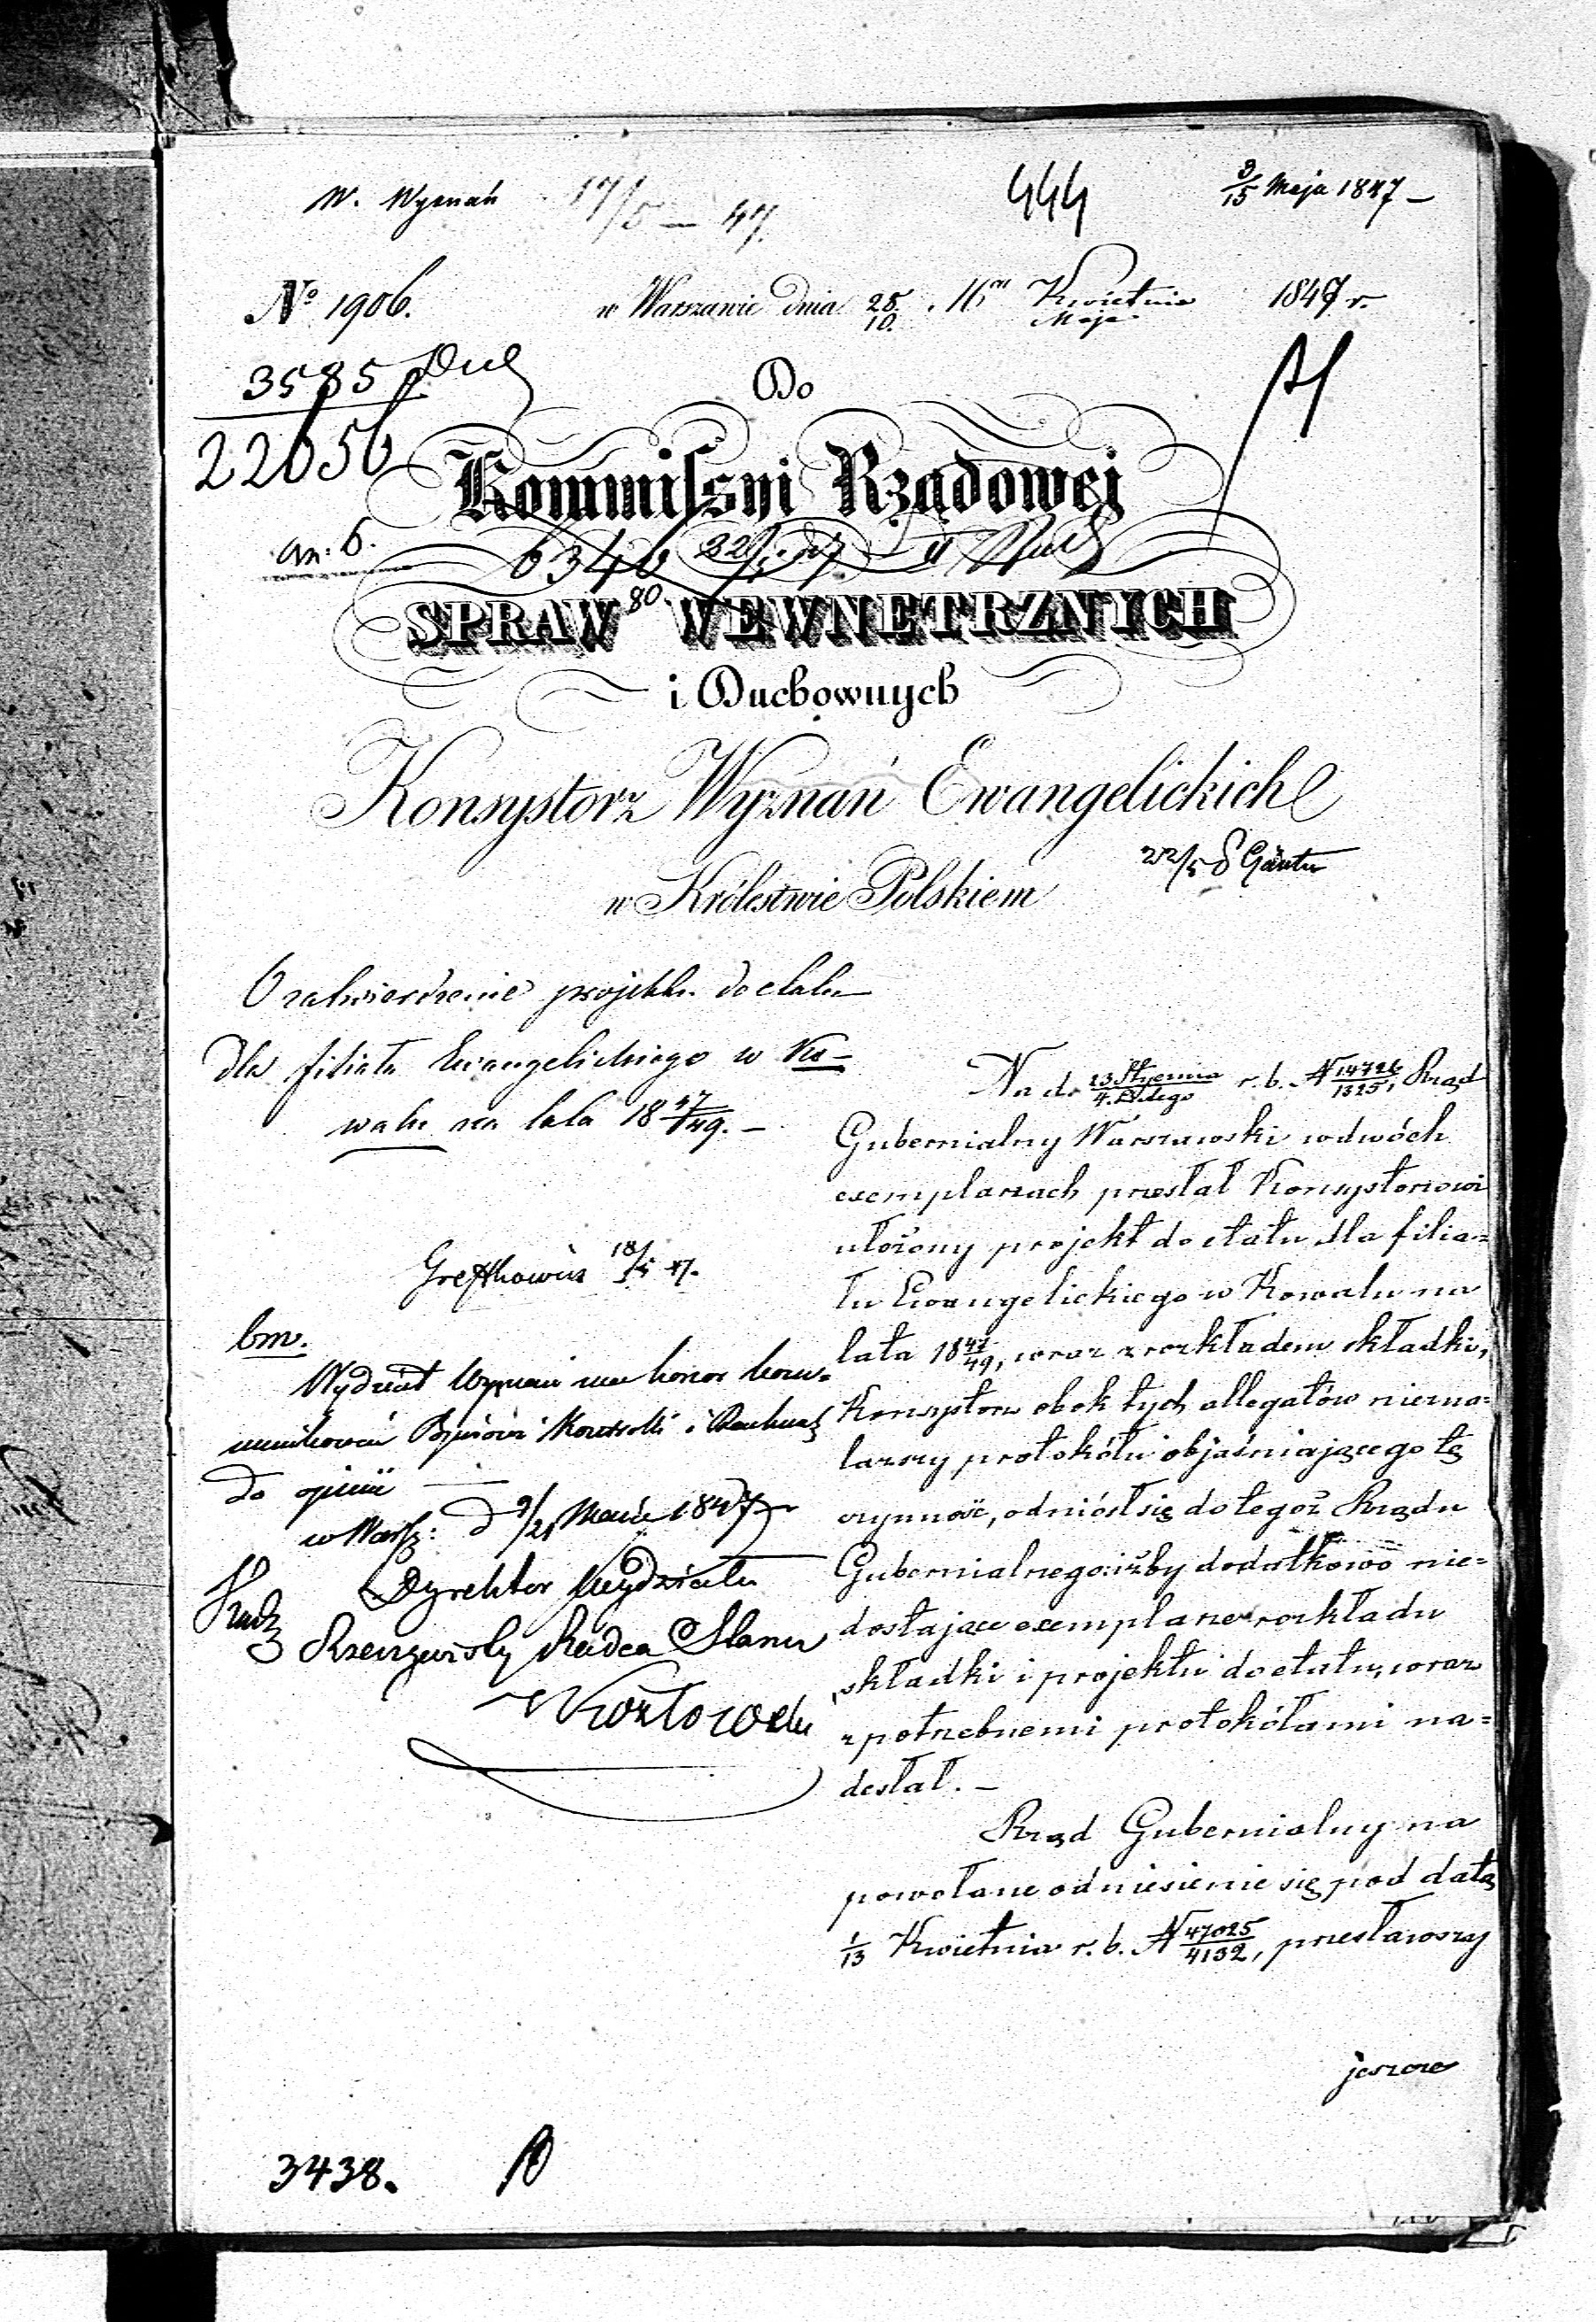 W. Wyznań 17/5 — 47. 444 3/15 Maja 1847 —
No 1906. w Warszawie dnia 28/10. Mca Kwietnia/Maja 1847 r.
3585
22656
Do
Kommissyi Rządowej
an: 6.
6346
80
SPRAW WEWNĘTRZNYCH
i Duchownych
Konsystorz Wyznań Ewangelickich
22/5
w Królestwie Polskiem
O zatwierdzenie projektu do etatu
dla filiału Ewangelickiego w Ko-
walu na lata 18 47/49. —
18/5 47.
bm.
Wydział Wyznań ma honor kom-
munikować Biurowi Kontrolli i
do opinii —
w Warsz: d 9/21 Maia 1847
Dyrektor Wydziału
Rzeczywisty Radca Stanu
Na d. 23 Stycznia/4. Lutego r. b. N 14726/1325, Rząd
Gubernialny Warszawski w dwóch
exemplarzach przesłał Konsystorzowi
ułożony projekt do etatu dla filia=
łu Ewangelickiego w Kowalu na
lata 18 47/49, wraz z rozkładem składki,
Konsystorz obok tych allegatów niezna=
lazszy protokółu objaśniającego tę
czynność, odniósł się do tegoż Rządu
Gubernialnego iżby dodatkowo nie=
dostające exemplarze rozkładu
składki i projektu do etatu, wraz
z potrzebnemi protokółami na=
desłał. —
Rząd Gubernialny na
powołane odniesienie się pod datą
1/13 Kwietnia r. b. N 47025/4132, przesławszy
jeszcze
3438.